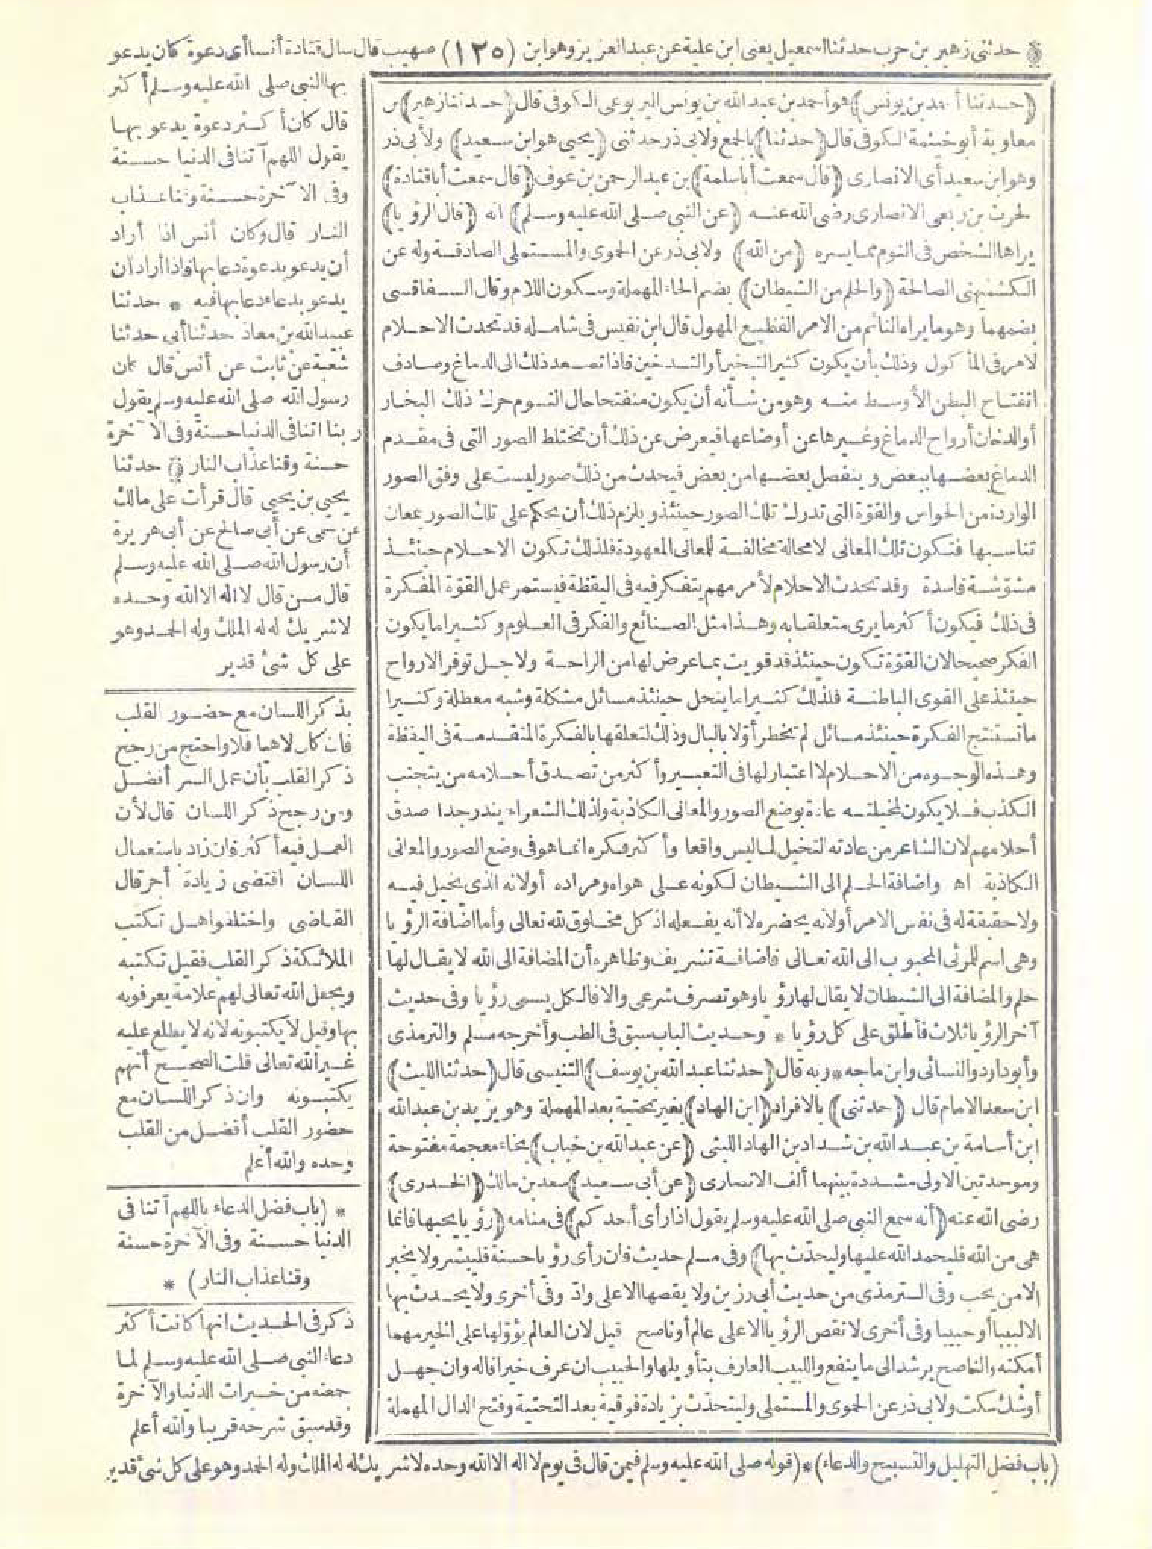 * حدثني زهير بن حرب حدثنا اسمعيل يعنى ابن علية عن عبد العزيز وهو ابن (١٢٥) صهيب قال سال قتادة أنسا أى دعوة كان يدعو
بها النبي صلى الله عليه وسلم أكثر
قال كان أكثر دعوة يدعو بها
يقول اللهم آتنا فى الدنيا حسنة
وفى الآخرة حسنة وقنا عذاب
النار قال وكان أنس اذا أراد
أن يدعو بدعوة دعا بها فاذا أراد أن
يدعو بدعاء دعا بها فيه * حدثنا
عبيد الله بن معاذ حدثنا أبى حدثنا
شعبة عن ثابت عن أنس قال كان
رسول الله صلى الله عليه وسلم يقول
ربنا اتنا فى الدنيا حسنة وفى الآخرة
حسنة وقنا عذاب النار * حدثنا
يحيى بن يحيى قال قرأت على مالك
عن سمى عن أبى صالح عن أبى هريرة
أن رسول الله صلى الله عليه وسلم
قال من قال لا اله الا الله وحده
لا شريك له له الملك وله الحمد وهو
على كل شئ قدير
بذكر اللسان مع حضور القلب
فان كان لاهيا فلا واحتج من رجح
ذكر القلب بأن عمل السر أفضل
ومن رجح ذكر اللسان قال لأن
العمل فيه أكثر فان زاد باستعمال
اللسان اقتضى زيادة أجر قال
القاضى واختلفوا هل تكتب
الملائكة ذكر القلب فقيل تكتبه
ويجعل الله تعالى لهم علامة يعرفونه
بها وقيل لا يكتبونه لانه لا يطلع عليه
غير الله تعالى قلت الصحيح أنهم
يكتبونه وان ذكر اللسان مع
حضور القلب أفضل من القلب
وحده والله أعلم
* (باب فضل الدعاء باللهم آتنا فى
الدنيا حسنة وفى الآخرة حسنة
وقنا عذاب النار) *
ذكر فى الحديث انها كانت أكثر
دعاء النبي صلى الله عليه وسلم لما
جمعته من خيرات الدنيا والآخرة
وقد سبق شرحه قريبا والله أعلم
(حدثنا أحمد بن يونس) هو أحمد بن عبد الله بن يونس اليربوعى الكوفى قال (حدثنا زهير) بن
معاوية أبو خيثمة الكوفى قال (حدثنا) بالجمع ولابى ذر حدثنى (يحيى هو ابن سعيد) ولأبى ذر
وهو ابن سعيد أى الانصارى (قال سمعت أبا سلمة) بن عبد الرحمن بن عوف (قال سمعت أبا قتادة)
الحرث بن ربعى الانصارى رضى الله عنه (عن النبي صلى الله عليه وسلم) انه (قال الرؤيا)
يراها الشخص فى النوم مما يسره (من الله) ولابى ذر عن الحموى والمستملى الصادقة وله عن
الكشميهنى الصالحة (والحلم من الشيطان) بضم الحاء المهملة وسكون اللام وقال السفاقسى
بضمهما وهو ما يراه النائم من الامر الفظيع المهول قال ابن نفيس فى شامله قد تحدث الاحلام
لامر فى المأكول وذلك بأن يكون كثير التبخير أو التدخين فاذا تصعد ذلك الى الدماغ وصادف
انفتاح البطن الأوسط منه وهو من شأنه أن يكون منفتحا حال النوم حرك ذلك البخار
أو الدخان أرواح الدماغ وغيرها عن أوضاعها فيعرض عن ذلك أن تختلط الصور التى فى مقدم
الدماغ بعضها ببعض وينفصل بعضها من بعض فيحدث من ذلك صور ليست على وفق الصور
الواردة من الحواس والقوّة التى تدرك تلك الصور حينئذ ويلزم ذلك أن يحكم على تلك الصور بمعان
تناسبها فتكون تلك المعانى لا محالة مخالفة للمعانى المعهودة فلذلك تكون الاحلام حينئذ
مشوّشة فاسدة وقد تحدث الاحلام لأمر مهم يتفكر فيه فى اليقظة فيستمر عمل القوّة المفكرة
فى ذلك فيكون أكثر ما يرى متعلقا به وهذا مثل الصنائع والفكر فى العلوم وكثيرا ما يكون
الفكر صحيحا لان القوّة تكون حينئذ قد قويت بما عرض لها من الراحة ولاجل توفر الارواح
حينئذ على القوى الباطنة فلذلك كثيرا ما ينحل حينئذ مسائل مشكلة وشبه معطلة وكثيرا
ما تستنتج الفكرة حينئذ مسائل لم تخطر أوّلا بالبال وذلك لتعلقها بالفكرة المتقدمة فى اليقظة
وهذه الوجوه من الاحلام لا اعتبار لها فى التعبير وأكثر من تصدق أحلامه من يتجنب
الكذب فلا يكون لمخيلته عادة بوضع الصور والمعانى الكاذبة ولذلك الشعراء يندر جدا صدق
أحلامهم لان الشاعر من عادته التخيل لما ليس واقعا وأكثر فكره انما هو فى وضع الصور والمعانى
الكاذبة اه واضافة الحلم الى الشيطان لكونه على هواه ومراده أو لانه الذى يخيل فيه
ولا حقيقة له فى نفس الامر أو لانه يحضره لا أنه يفعله اذ كل مخلوق لله تعالى وأما اضافة الرؤيا
وهى اسم للمرئى المحبوب الى الله تعالى فاضافة تشريف وظاهره أن المضافة الى الله لا يقال لها
حلم والمضافة الى الشيطان لا يقال لها رؤيا وهو تصرف شرعى والا فالكل يسمى رؤيا وفى حديث
آخر الرؤيا ثلاث فأطلق على كل رؤيا * وحديث الباب سبق فى الطب وأخرجه مسلم والترمذى
وأبو داود والنسائى وابن ماجه * وبه قال (حدثنا عبد الله بن يوسف) التنيسى قال (حدثنا الليث)
ابن سعد الامام قال (حدثنى) بالافراد (ابن الهاد) بغير تحتية بعد المهملة وهو يزيد بن عبد الله
ابن أسامة بن عبد الله بن شداد بن الهاد الليثى (عن عبد الله بن خباب) بخاء معجمة مفتوحة
وموحدتين الاولى مشددة بينهما ألف الانصارى (عن أبى سعيد) سعد بن مالك (الخدرى)
رضى الله عنه (أنه سمع النبي صلى الله عليه وسلم يقول اذا رأى أحدكم) فى منامه (رؤيا يحبها فانما
هى من الله فليحمد الله عليها وليحدّث بها) وفى مسلم حديث فان رأى رؤيا حسنة فليبشر ولا يخبر
الا من يحب وفى الترمذى من حديث أبى رزين ولا يقصها الا على وادّ وفى أخرى ولا يحدث بها
الا لبيبا أو حبيبا وفى أخرى لا تقص الرؤيا الا على عالم أو ناصح قيل لان العالم يؤوّلها على الخير مهما
أمكنه والناصح يرشد الى ما ينفع واللبيب العارف بتأويلها والحبيب ان عرف خيرا قاله وان جهل
أو شك سكت ولابى ذر عن الحموى والمستملى وليتحدّث بزيادة فوقية بعد التحتية وفتح الدال المهملة
(باب فضل التهليل والتسبيح والدعاء) * (قوله صلى الله عليه وسلم فيمن قال فى يوم لا اله الا الله وحده لا شريك له له الملك وله الحمد وهو على كل شئ قدير